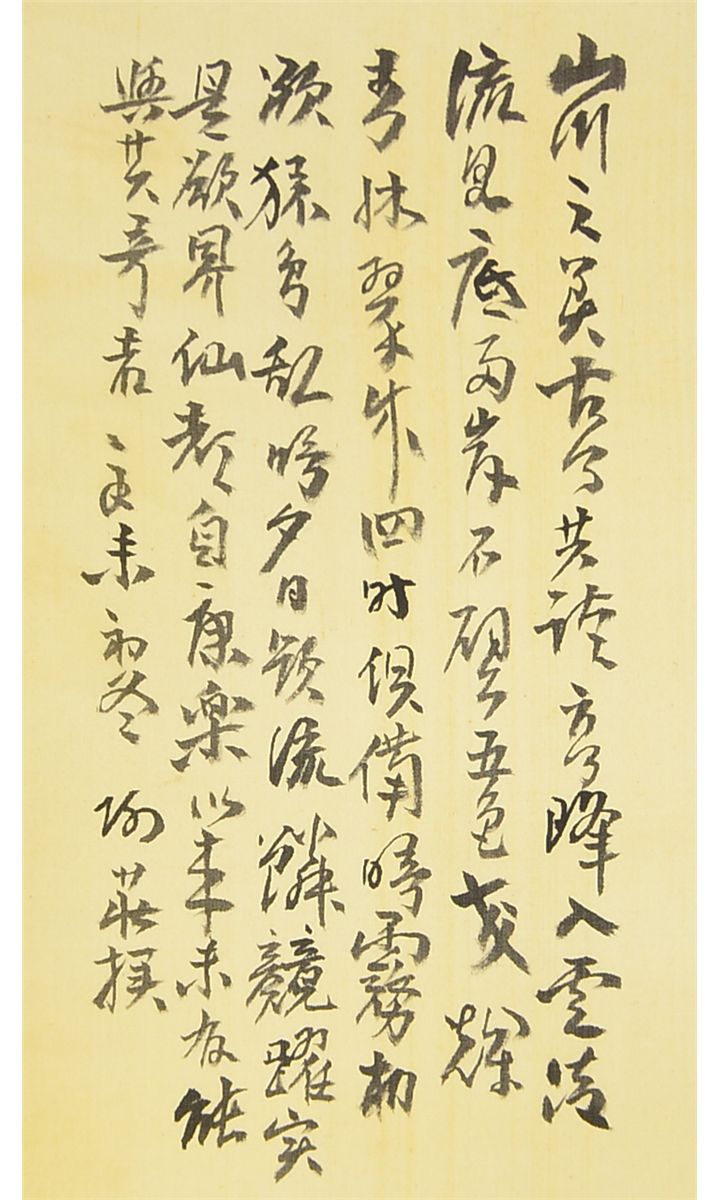 山川之美古今共談高峰入雲清
流見底両岸石壁五色交輝
青林翠竹四时俱備時霧初
歇猿鳥乱鳴夕日頹流鱗競躍实
是欲界仙都自康楽以来未有能
與其奇者 辛未初冬 莊撰